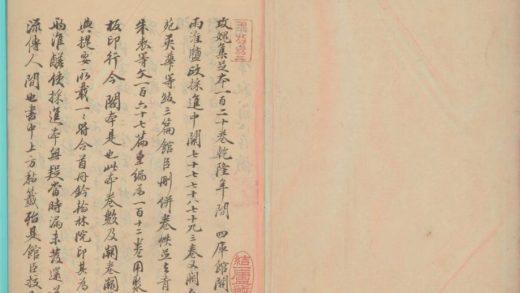 攻媿集足本一百二十卷乾隆年間 四庫館開
兩淮鹽政採進中闕七十七七十八七十九三卷又闕
苑英華等跋三篇館臣刪併卷帙並去青
朱表等文一百六十七篇重編爲一百十二卷用聚
板印行今 閣本是也此本卷數及闕卷闕
與提要所載一一符合首冊鈐翰林院印其爲
兩淮鹺使採進本無疑當時漏未發還遂
流傳人間也書中上方黏籤殆是館臣校